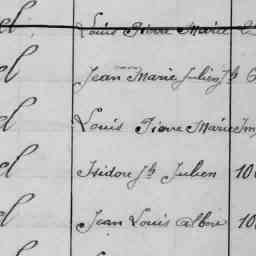 Louis Pierre Marie
Jean Marie Julien Jh
Louis Pierre Marie
Isidore Jh Julien 10
Jean Louis 10